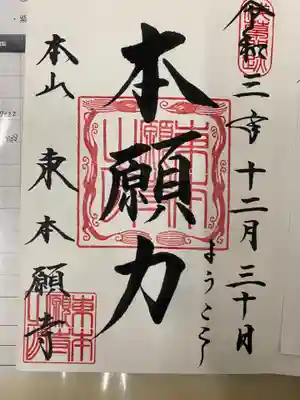 令和三年十二月三十日
ようこそ
本願力
本山 東本願寺